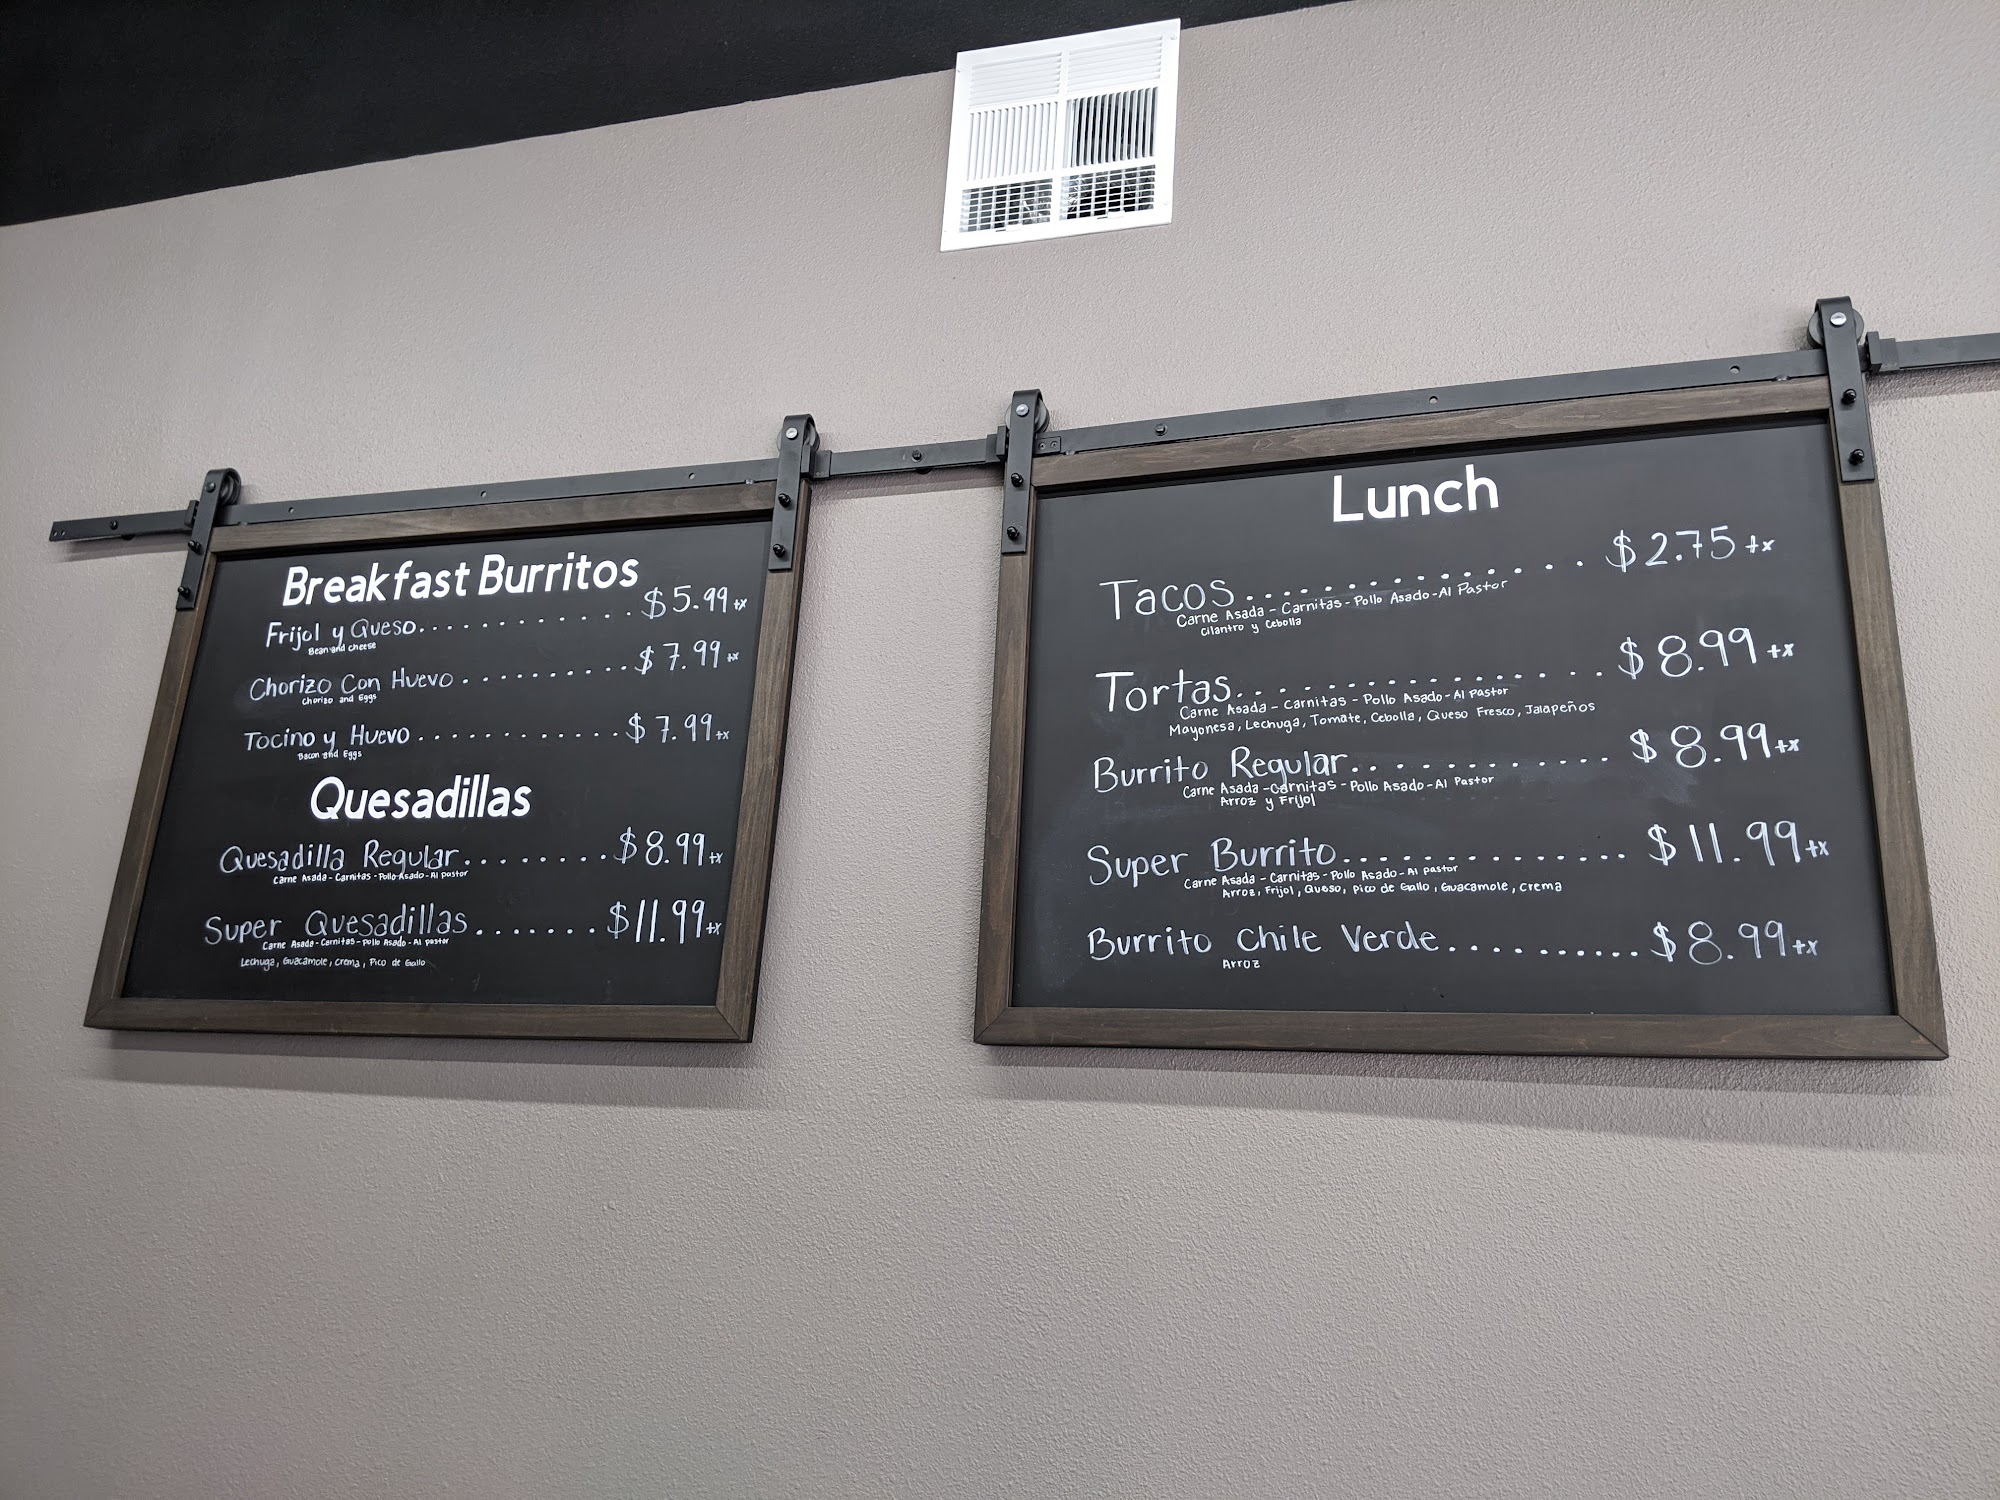 Breakfast Burritos
Frijol y Queso............$5.99+x
Bean and cheese
Chorizo Con Huevo..........$7.99+x
Chorizo and Eggs
Tocino y Huevo............$7.99+x
Bacon and Eggs
Quesadillas
Quesadilla Regular........$8.99+x
Carne Asada - Carnitas - Pollo Asado - Al pastor
Super Quesadillas.......$11.99+x
Carne Asada - Carnitas - Pollo Asado - Al pastor
Lechuga, Guacamole, crema, Pico de Gallo
Lunch
Tacos................$2.75+x
Carne Asada - Carnitas - Pollo Asado - Al Pastor
Cilantro y Cebolla
Tortas.................$8.99+x
Carne Asada - Carnitas - Pollo Asado - Al pastor
Mayonesa, Lechuga, Tomate, Cebolla, Queso Fresco, Jalapeños
Burrito Regular............$8.99+x
Carne Asada - Carnitas - Pollo Asado - Al Pastor
Arroz y Frijol
Super Burrito..............$11.99+x
Carne Asada - Carnitas - Pollo Asado - Al pastor
Arroz, Frijol, Queso, Pico de Gallo, Guacamole, Crema
Burrito Chile Verde..........$8.99+x
Arroz